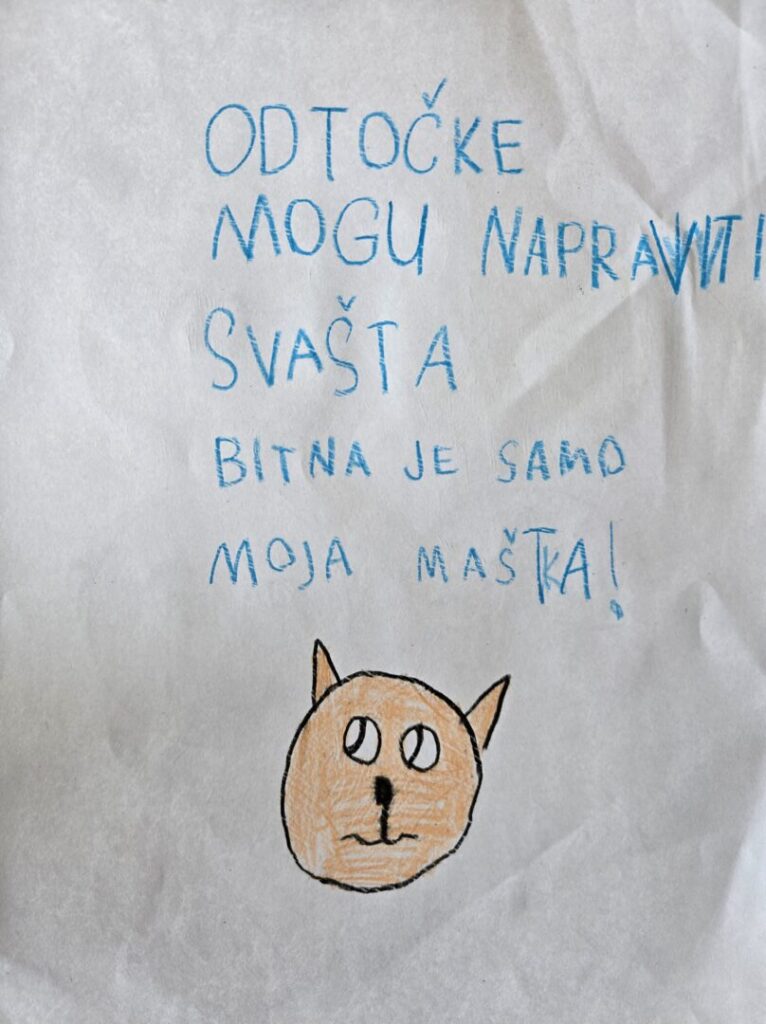 ODTOČKE
MOGU NAPRAVITI
SVAŠTA
BITNA JE SAMO
MOJA MAŠTKA!